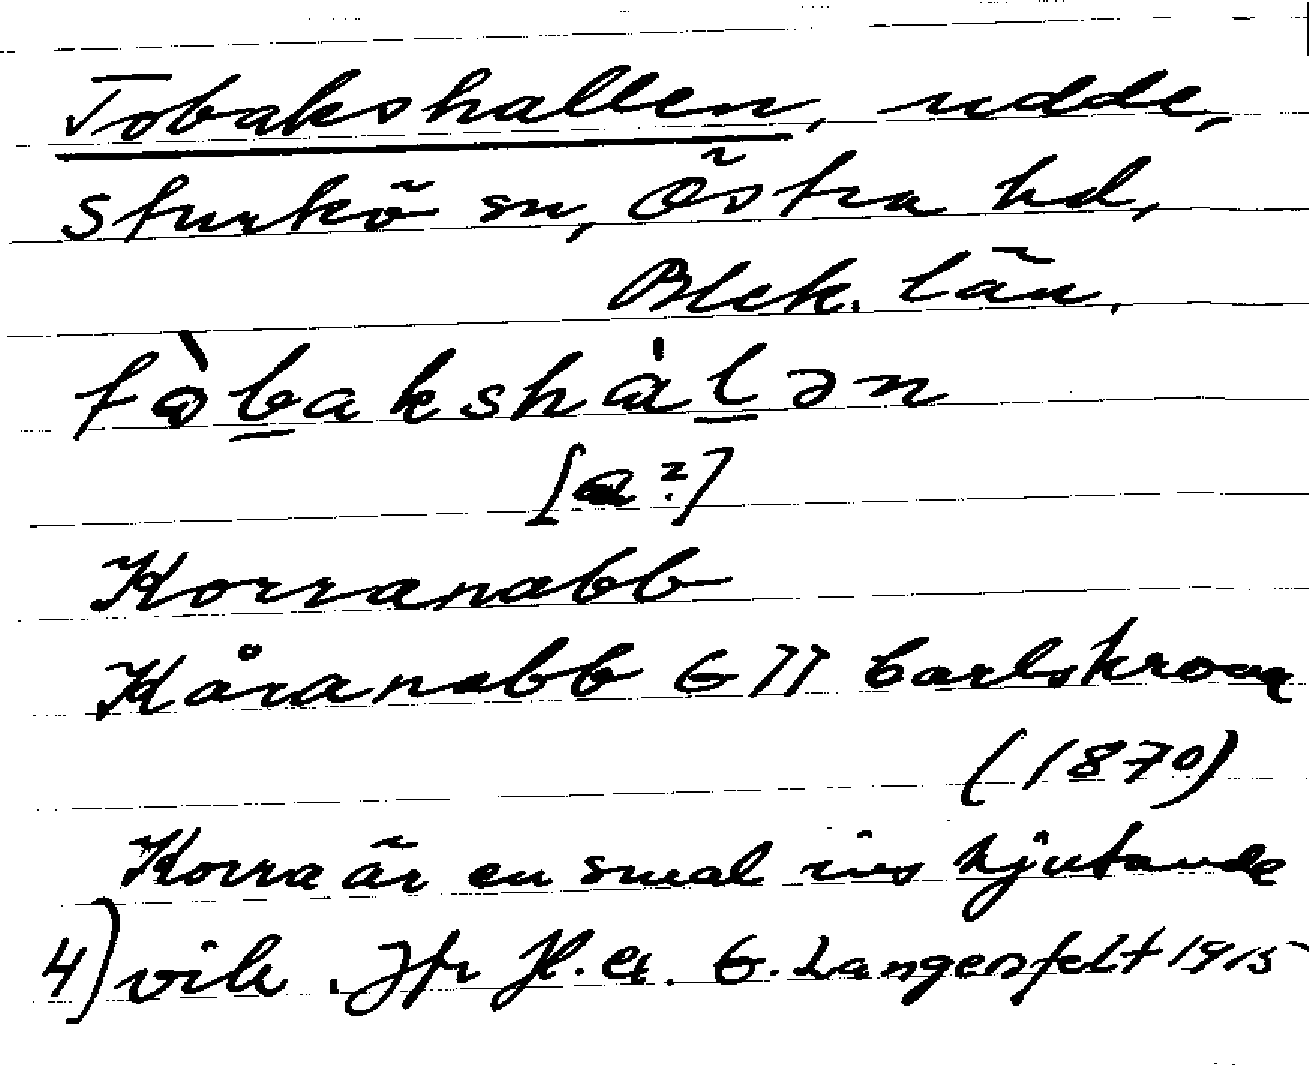 Tobakshallen, udde,
Sturkö sn, Östra hd,
Blek. län.
tòbakshàlən
[a?]
Korranabb
Kåranabb GTT Carlskrona
(1870)
Korra är en smal inskjutande
4) vik. Jfr G. Langensfelt 1915